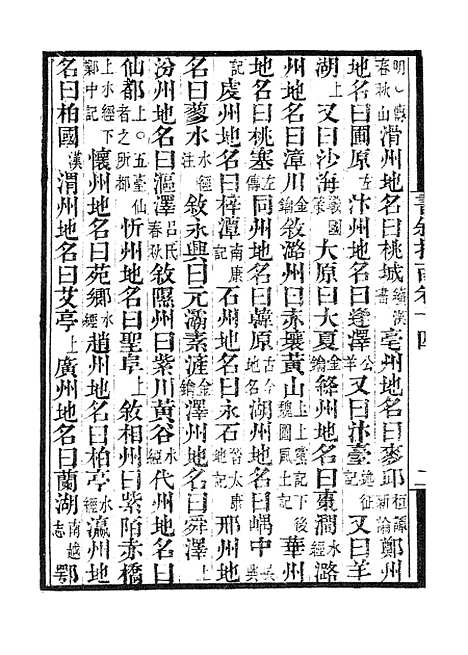 滑州地名曰桃城亳州地名曰麥邱桓譚新論鄭州
地名曰圃原左汴州地名曰逢澤公羊又曰汴臺述征記又曰羊
湖上又曰沙海戰國策大原曰大夏左絳州地名曰棗澗水經潞
州地名曰漳川敘潞州曰赤壤黃山上黨記下後魏國風土記華州
地名曰桃塞左傳同州地名曰韓原古今地名湖州地名曰嵎中
記虔州地名曰梓潭南康記石州地名曰永石晉太康地記邢州地
名曰蓼水水經注敘永興曰元灞素滻澤州地名曰舜澤上
汾州地名曰漚澤呂氏春秋敘隰州曰紫川黃谷水經代州地名曰
仙都上〇五臺仙者之所都忻州地名曰聖阜上敘相州曰紫陌赤橋
上水經下鄴中記懷州地名曰苑鄉水經趙州地名曰柏亭水經瀛州地
名曰柏國漢渭州地名曰艾亭上廣州地名曰蘭湖南越志鄂
書敘指南卷十四